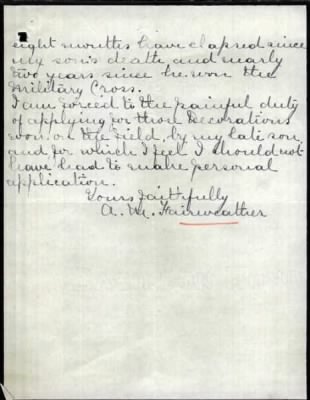 eight months have elapsed since
my son's death, and nearly
two years since he won the
Military Cross.
I am forced to the painful duty
of applying for those Decorations
won on the Field, by my late son
and for which I feel I should not
have had to make personal
application.
Yours faithfully
A. M. Fairweather